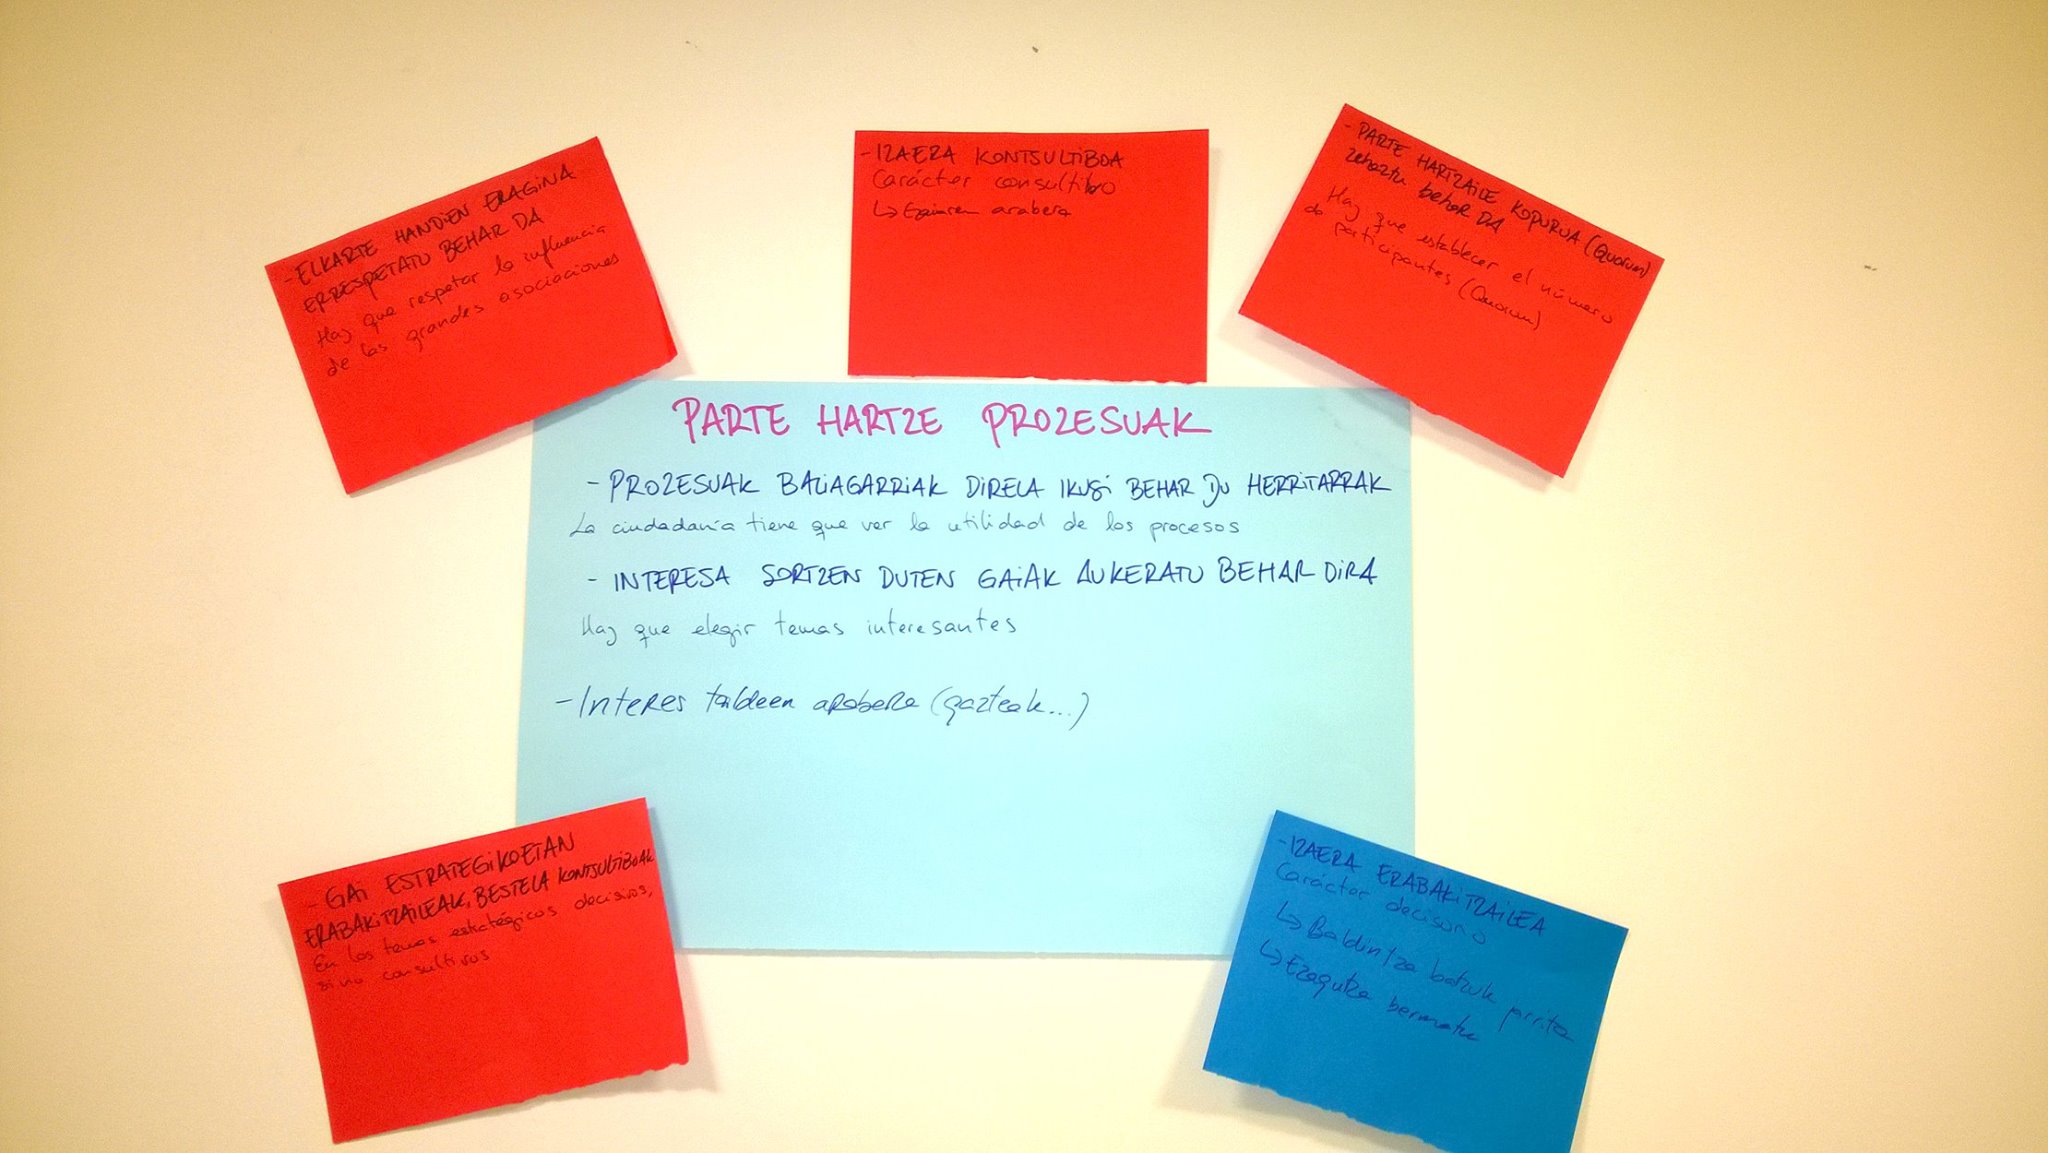 - ELKARTE HANDIEN ERAGINA
ERRESPETATU BEHAR DA
Hay que respetar la influencia
de las grandes asociaciones
- IZAERA KONTSULTIBOA
Carácter consultivo
↳ Egiaren arabera
- PARTE HARTZAILE KOPURUA (Quorum)
zehaztu behar DA
Hay que establecer el número
de participantes (Quorum)
PARTE HARTZE PROZESUAK
- PROZESUAK BALIAGARRIAK DIRELA IKUSI BEHAR DU HERRITARRAK
La ciudadanía tiene que ver la utilidad de los procesos
- INTERESA SORTZEN DUTEN GAIAK AUKERATU BEHAR DIRA
Hay que elegir temas interesantes
- Interes taldeen arabera (gazteak...)
- GAI ESTRATEGIKOETAN
ERABAKITZAILEAK, BESTELA KONTSULTIBOAK
En los temas estratégicos decisivos,
si no consultivos
- IZAERA ERABAKITZAILEA
Carácter decisorio
↳ Baldintza batzuk
↳ Ezagutza bermatu